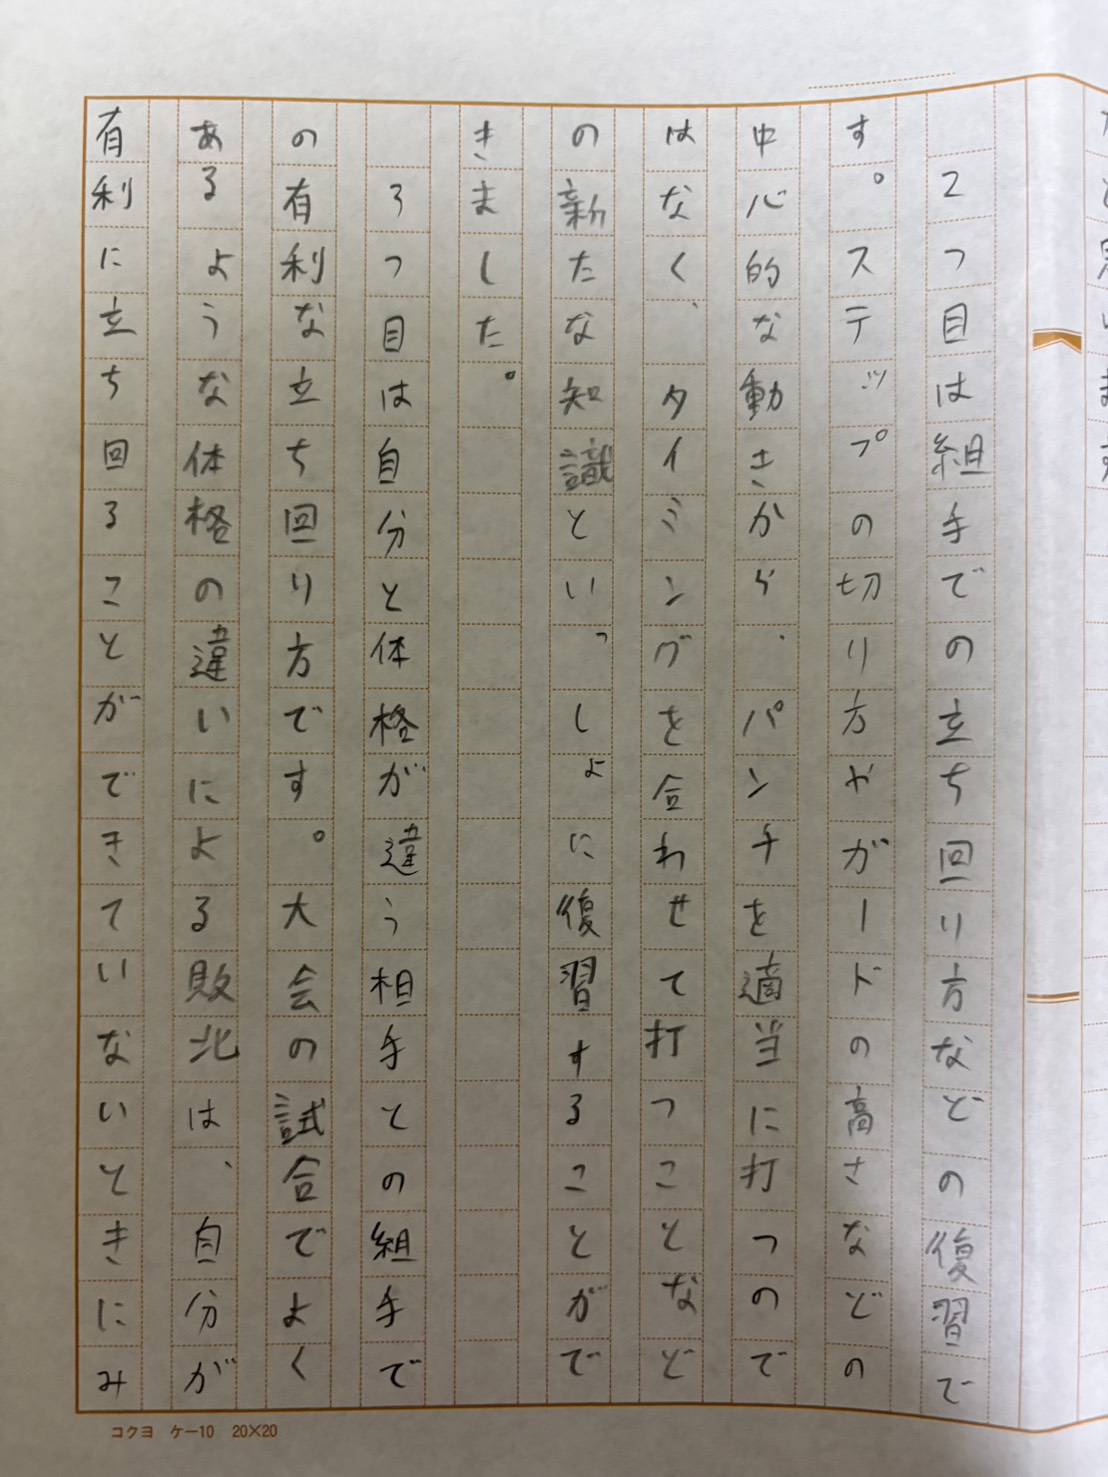 と思います
2つ目は組手での立ち回り方などの復習で
す。ステップの切り方やガードの高さなどの
中心的な動きから、パンチを適当に打つので
はなく、タイミングを合わせて打つことなど
の新たな知識といっしょに復習することがで
きました。
3つ目は自分と体格が違う相手との組手で
の有利な立ち回り方です。大会の試合でよく
あるような体格の違いによる敗北は、自分が
有利に立ち回ることができていないときにみ
コクヨ ケー10 20×20